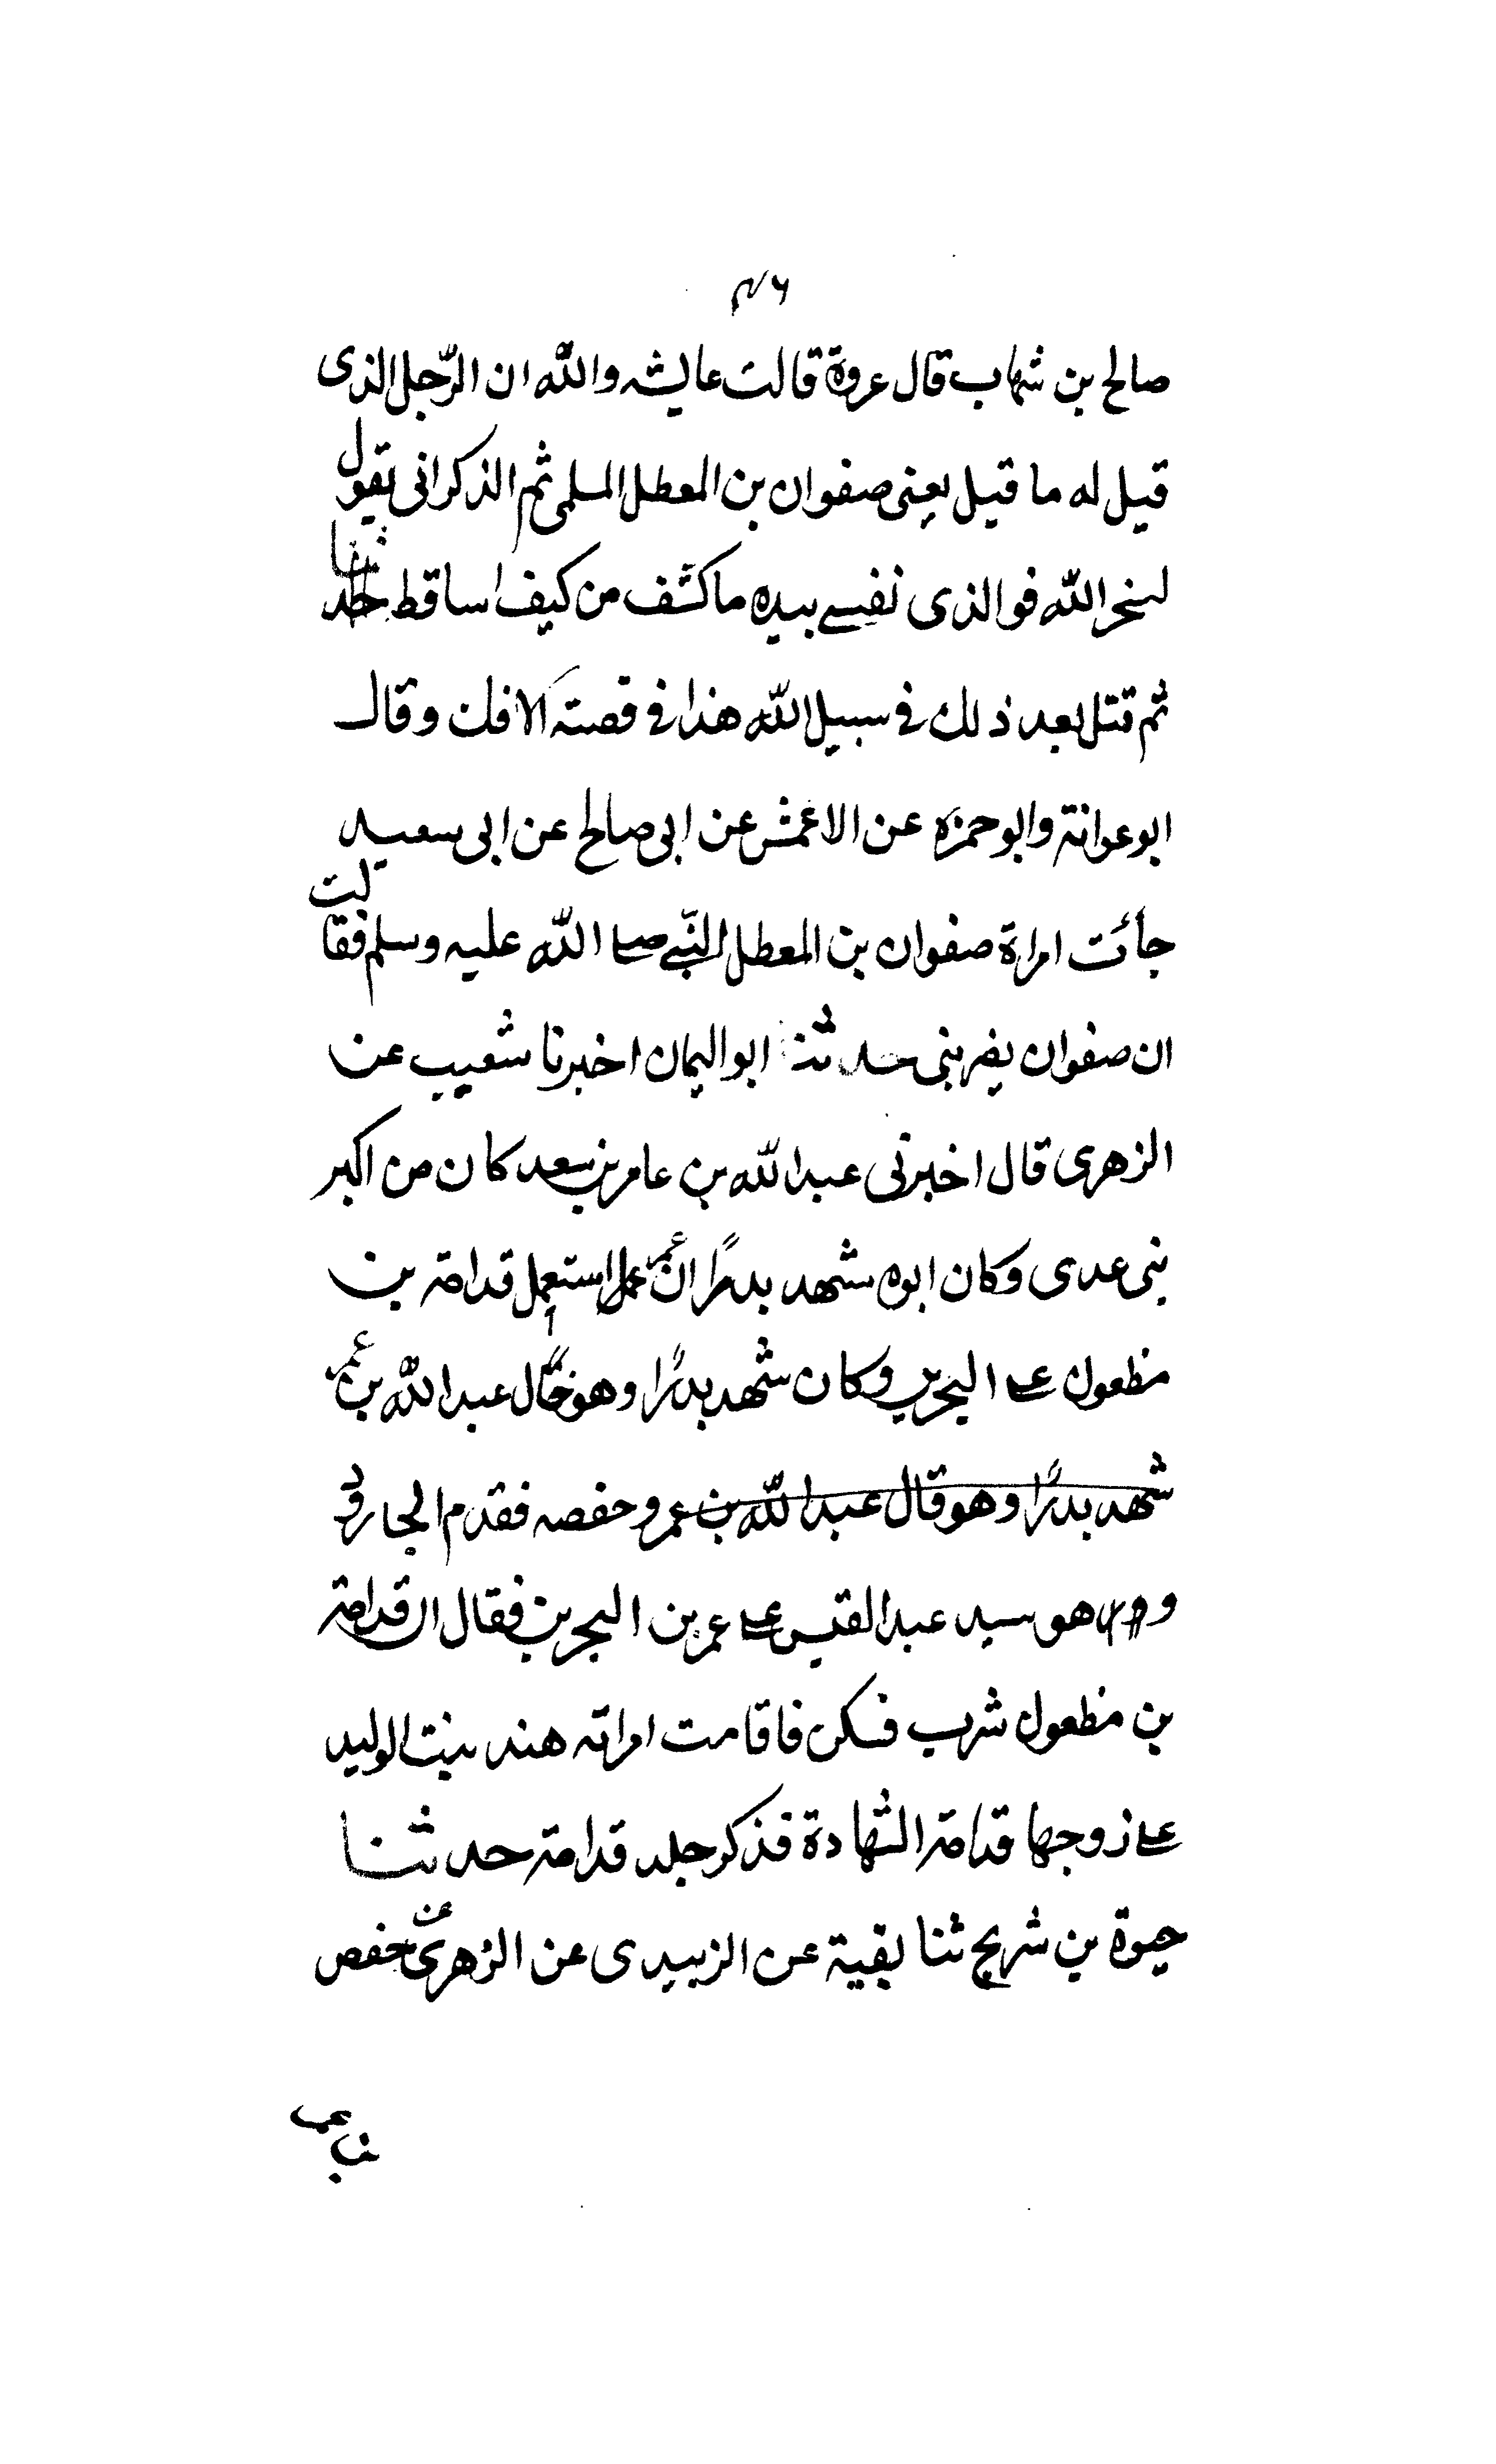 ٤٦
صالح بن شهاب قال عروة قالت عايشه والله ان الرّجل الذى
قيل له ما قيل يعنى صفوان بن المعطل السلمى ثم الذكرانى يقول
فوالذى نفسے بيده ما كشف من كيف اساقط
ثم قتل بعد ذلك فى سبيل الله هذا فى قصته الافك وقال
ابو عوانة وابو حمزه عن الاعمش عن ابى صالح عن ابى سعيد
جائت امراة صفوان بن المعطل النّبے صلے الله عليه وسلم فقالت
ان صفوان يضربنى حدثنا ابو اليمان اخبرنا شعيب عن
الزهرى قال اخبرنى عبد الله بن عامر بن سعد كان من اكبر
بنى عدى وكان ابوه شهد بدرًا ان عمر استعمل قدامة بن
مظعون علے البحرين وكان شهد بدرًا وهو خال عبد الله بن عمر
شهد بدرًا وهو قال عبد الله بن عمر وحفصه فقدم الجارود
و هو سيد عبد القيس علے عمر بن البحرين فقال ان قدامة
بن مظعون شرب فسكر فاقامت امراته هند بنت الوليد
علے زوجها قدامة الشهادة فذكر جلد قدامة حدثنا
حيوة بن شريح ثنا بقية عن الزبيدى عن الزهرى عن حفص